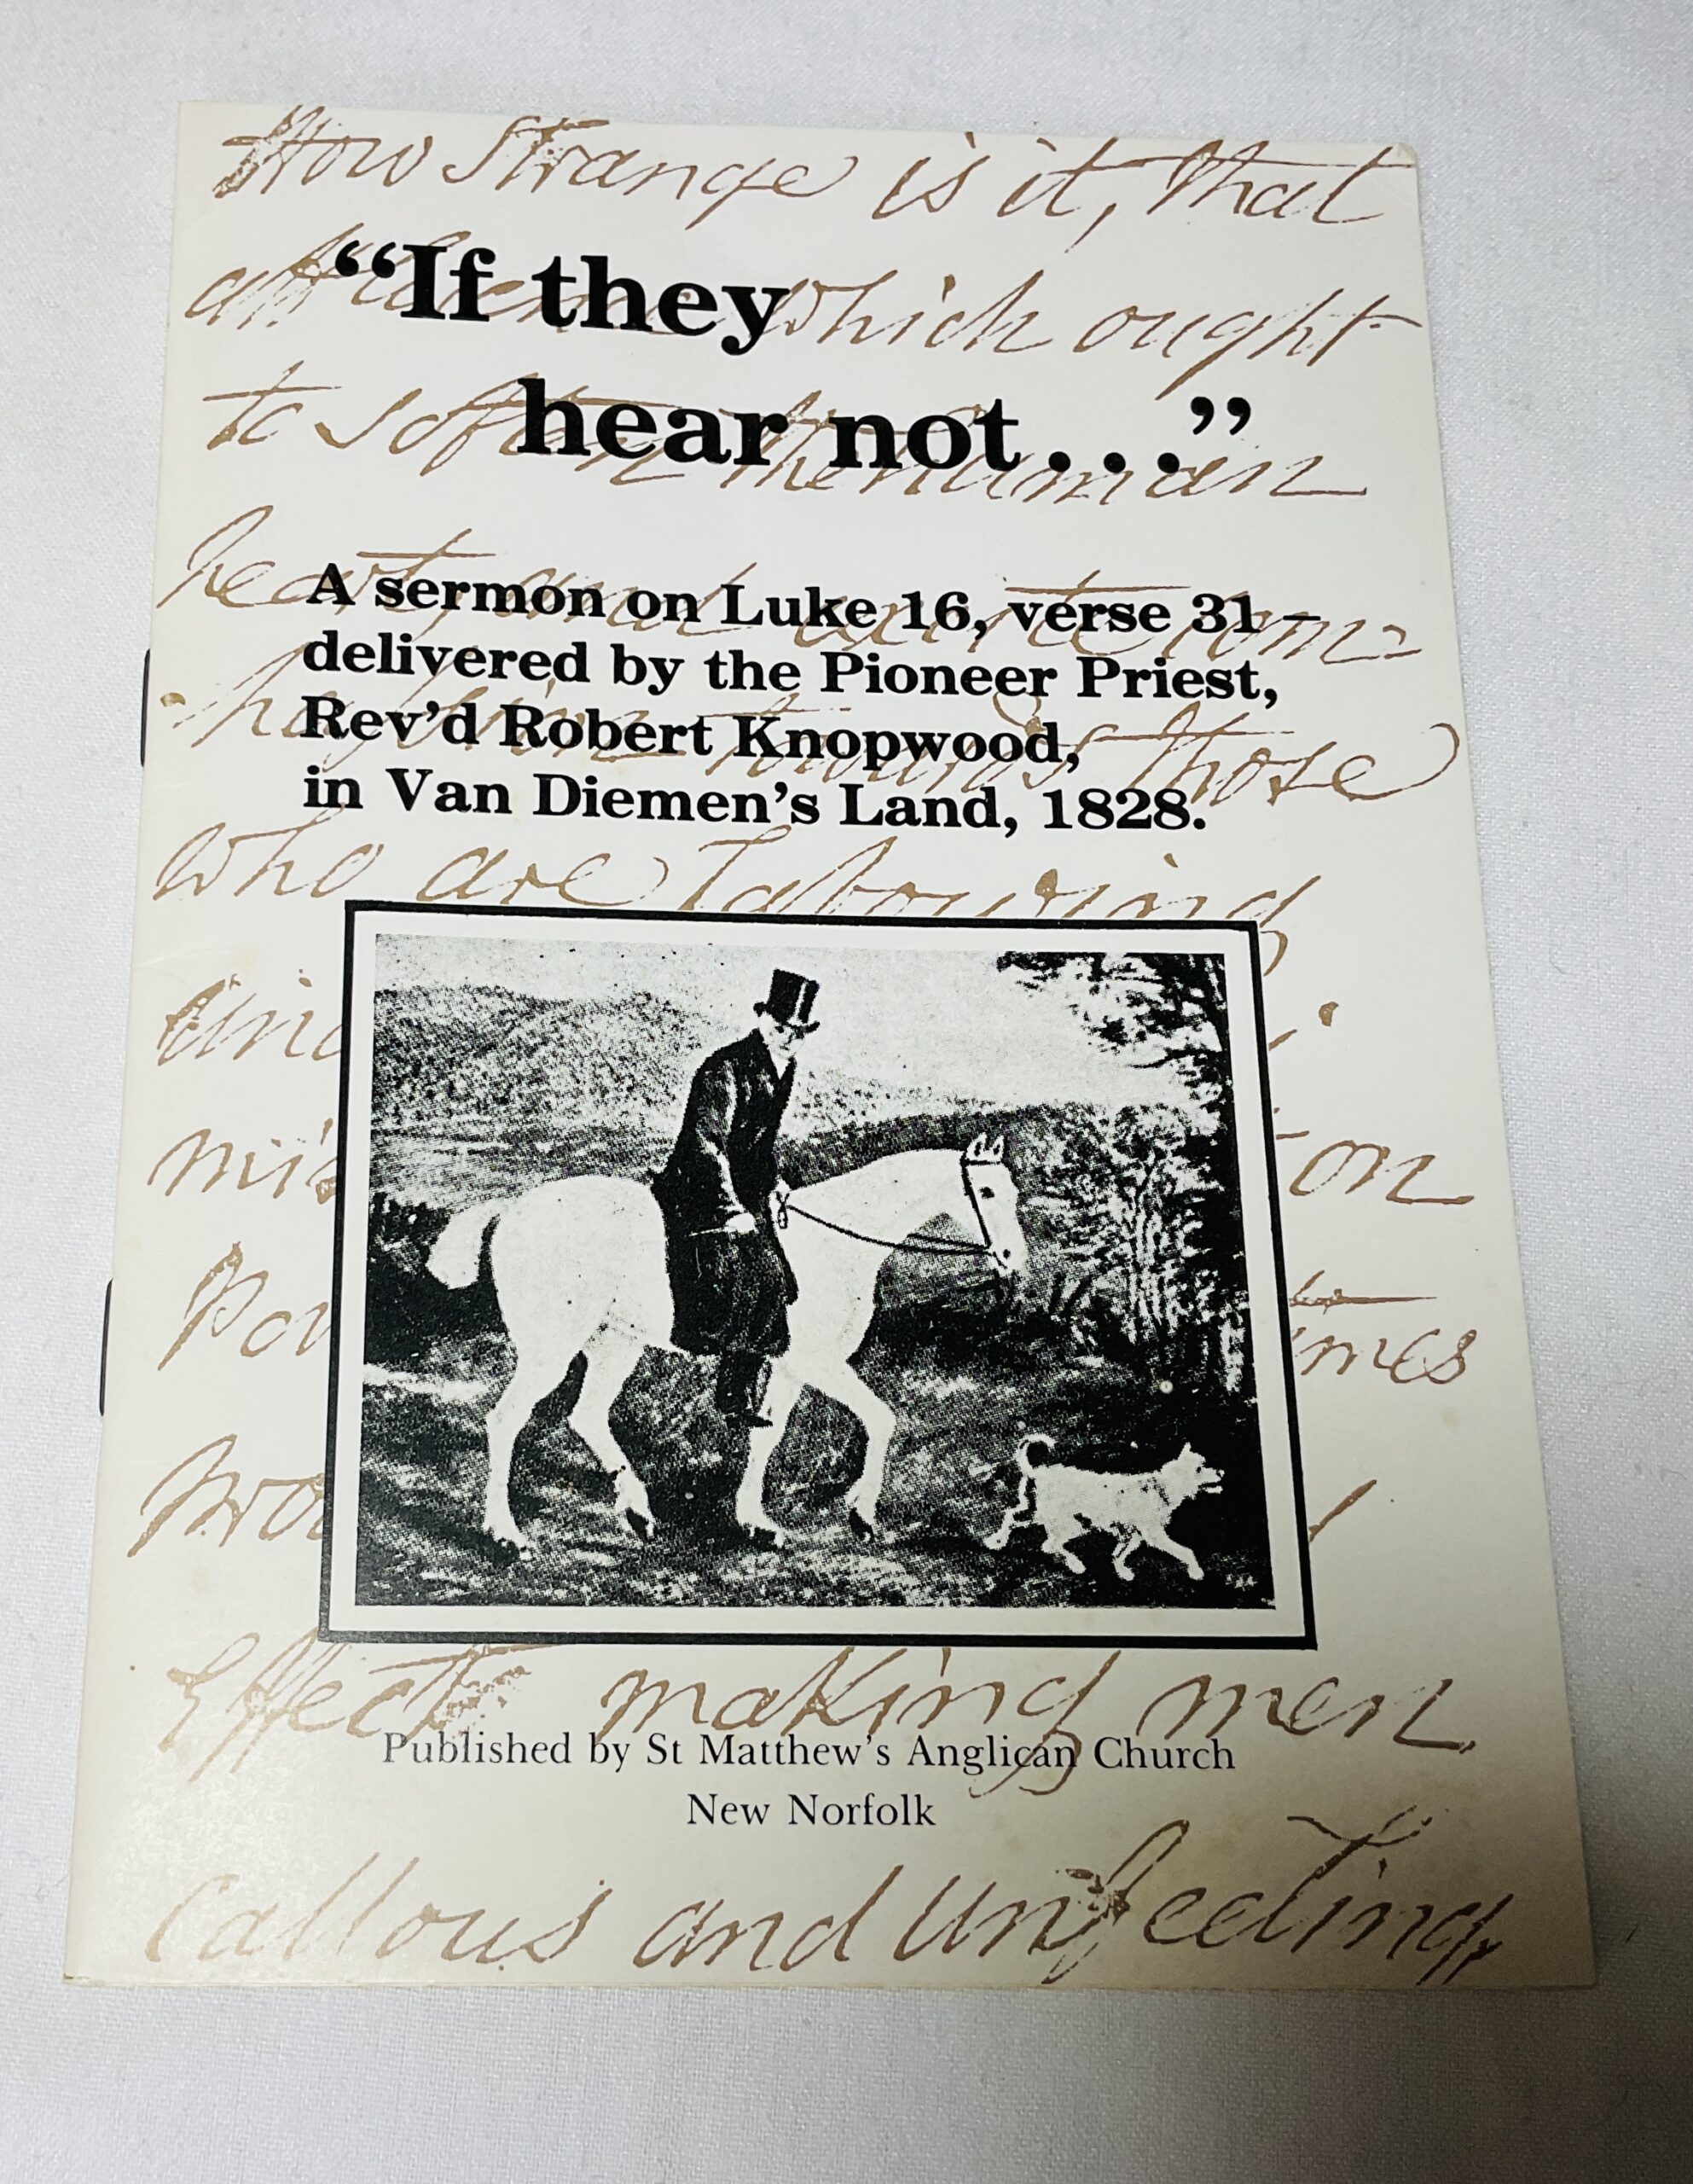 How strange is it, that
which ought
"If they
to soften the human
hear not . . ."
heart, and
A sermon on Luke 16, verse 31 –
delivered by the Pioneer Priest,
towards those
Rev'd Robert Knopwood,
in Van Diemen's Land, 1828.
who are labouring
on
Effect making men
Published by St Matthew's Anglican Church
New Norfolk
Callous and unfeeling,